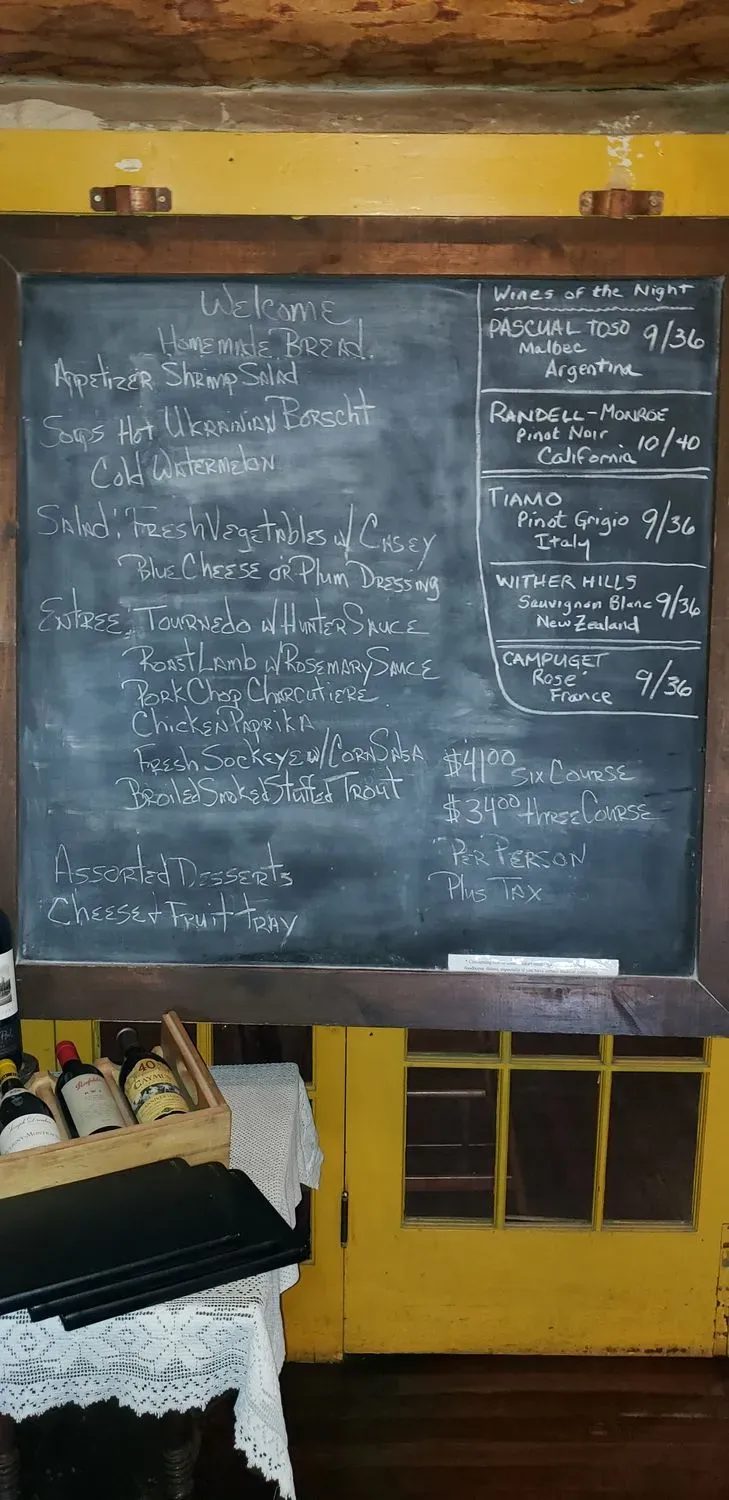 Welcome
Homemade Bread
Appetizer Shrimp Salad
Soups Hot Ukrainian Borscht
Cold Watermelon
Salad: Fresh Vegetables w/ Casey
Blue Cheese or Plum Dressing
Entree: Tournedo w/ Hunter Sauce
Roast Lamb w/ Rosemary Sauce
Pork Chop Charcutiere
Chicken Paprika
Fresh Sockeye w/ Corn Salsa
Broiled Smoked Stuffed Trout
Assorted Desserts
Cheese + Fruit tray
Wines of the Night
PASCUAL TOSO 9/36
Malbec
Argentina
RANDELL-MONROE
Pinot Noir 10/40
California
TIAMO
Pinot Grigio 9/36
Italy
WITHER HILLS
Sauvignon Blanc 9/36
New Zealand
CAMPUGET
Rose' 9/36
France
$41.00 Six Course
$34.00 three Course
Per Person
Plus Tax
Penfolds
40
CAYMUS